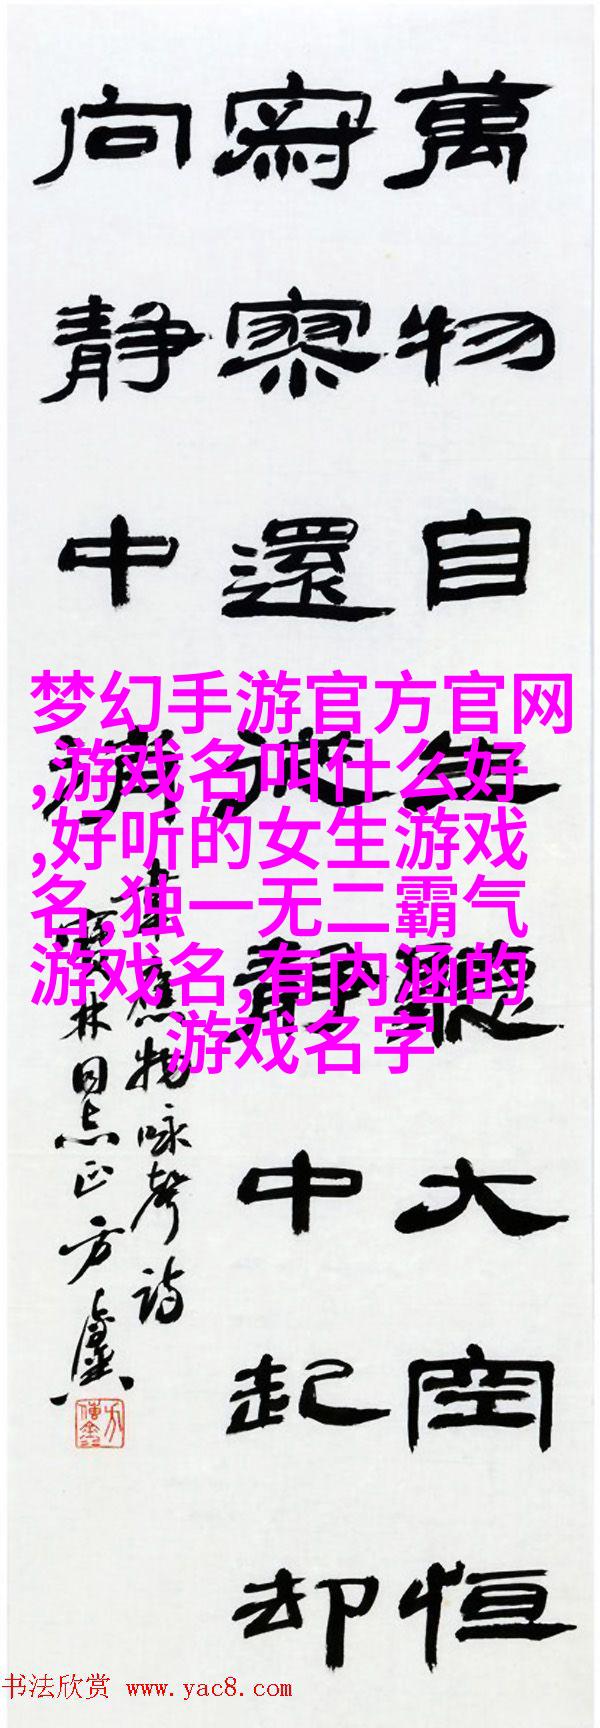 萬物自生聽大空恒
寂寥還從靜中起却
向静中消
韋應物咏聲詩
寶林同志正方
梦幻手游官方官网
,游戏名叫什么好
,好听的女生游戏
名,独一无二霸气
游戏名,有内涵的
游戏名字
书法欣赏 www.yac8.com